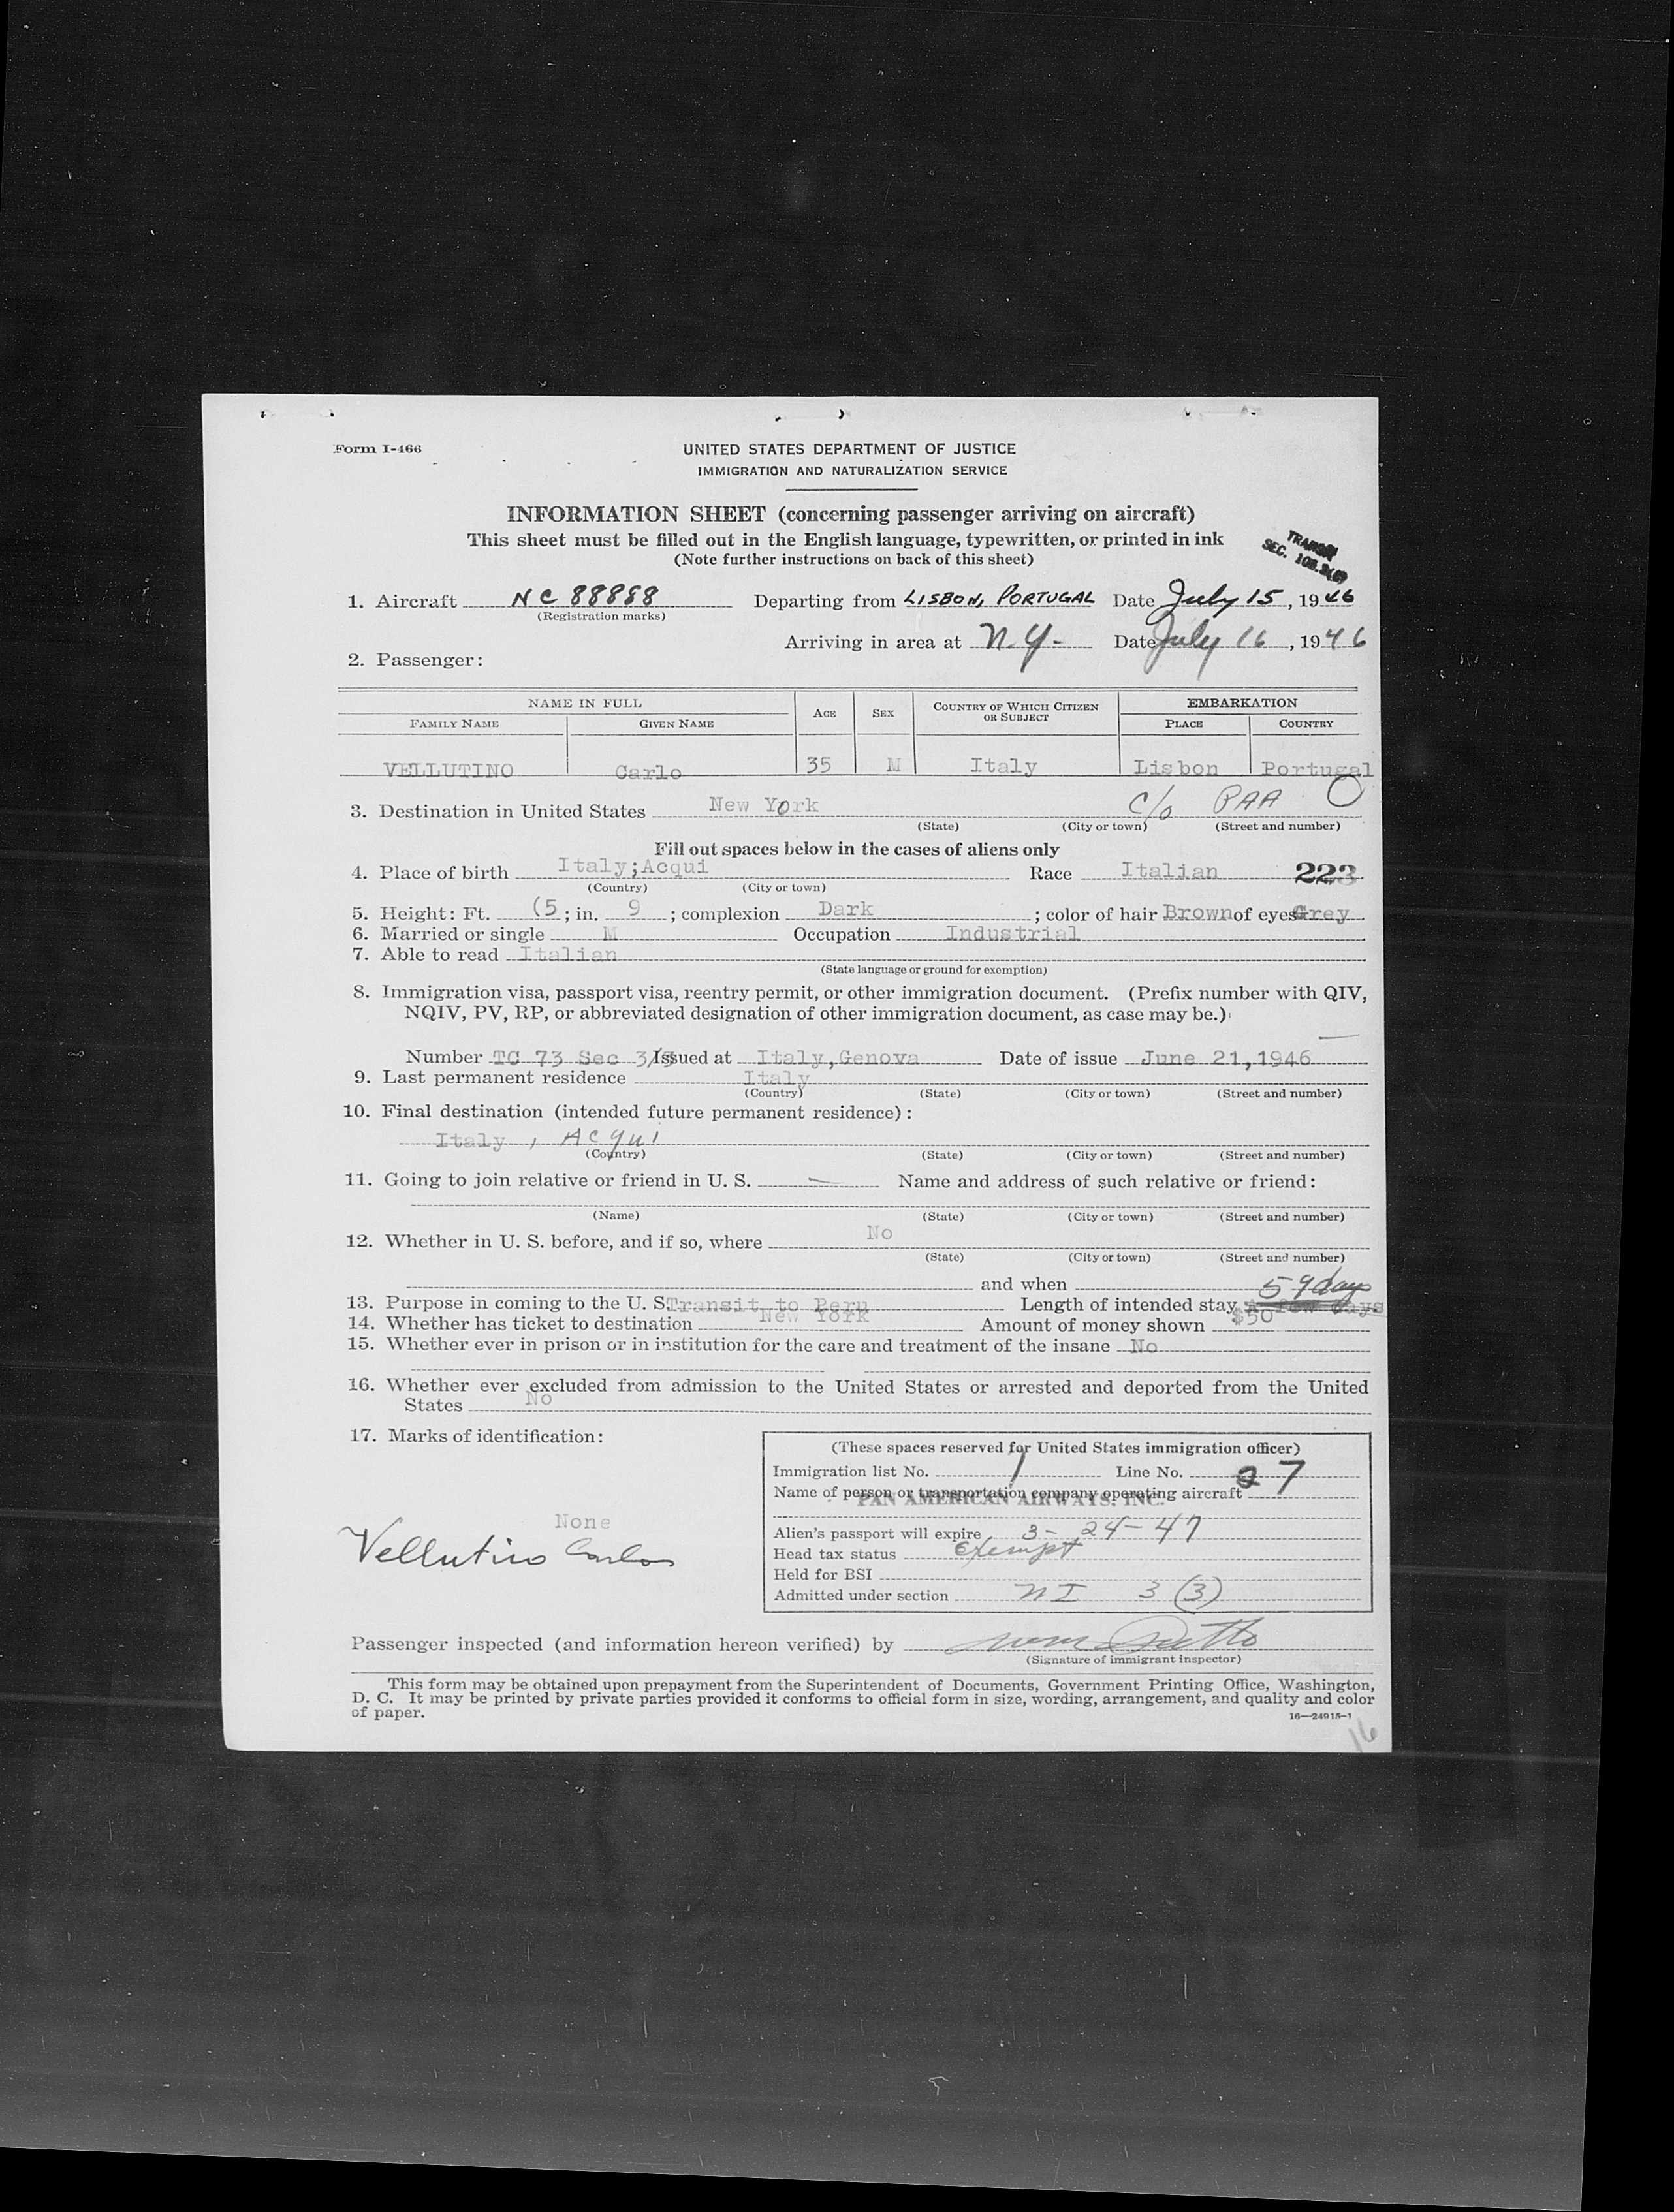 Form I-466
UNITED STATES DEPARTMENT OF JUSTICE
IMMIGRATION AND NATURALIZATION SERVICE
INFORMATION SHEET (concerning passenger arriving on aircraft)
This sheet must be filled out in the English language, typewritten, or printed in ink
(Note further instructions on back of this sheet)
TRANSIT
SEC.
1. Aircraft NC 88888 Departing from LISBON, PORTUGAL Date July 15, 1946
(Registration marks)
Arriving in area at N.Y. Date July 16, 1946
2. Passenger:
NAME IN FULL AGE SEX COUNTRY OF WHICH CITIZEN OR SUBJECT EMBARKATION
FAMILY NAME GIVEN NAME PLACE COUNTRY
VELLUTINO Carlo 35 M Italy Lisbon Portugal
3. Destination in United States New York C/o PAA
(State) (City or town) (Street and number)
Fill out spaces below in the cases of aliens only
4. Place of birth Italy;Acqui Race Italian 223
(Country) (City or town)
5. Height: Ft. (5; in. 9; complexion Dark; color of hair Brown of eyes Grey
6. Married or single M Occupation Industrial
7. Able to read Italian
(State language or ground for exemption)
8. Immigration visa, passport visa, reentry permit, or other immigration document. (Prefix number with QIV,
NQIV, PV, RP, or abbreviated designation of other immigration document, as case may be.)
Number TC 73 Sec 3/3 Issued at Italy,Genova Date of issue June 21,1946
9. Last permanent residence Italy
(Country) (State) (City or town) (Street and number)
10. Final destination (intended future permanent residence):
Italy, Acqui
(Country) (State) (City or town) (Street and number)
11. Going to join relative or friend in U. S. — Name and address of such relative or friend:
(Name) (State) (City or town) (Street and number)
12. Whether in U. S. before, and if so, where No
(State) (City or town) (Street and number)
and when 59 days
13. Purpose in coming to the U. S. Transit to Peru Length of intended stay A few days
14. Whether has ticket to destination New York Amount of money shown $50
15. Whether ever in prison or in institution for the care and treatment of the insane No
16. Whether ever excluded from admission to the United States or arrested and deported from the United
States No
17. Marks of identification:
None
Vellutino Carlos
(These spaces reserved for United States immigration officer)
Immigration list No. 1 Line No. 27
Name of person or transportation company operating aircraft
PAN AMERICAN AIRWAYS, INC.
Alien's passport will expire 3-24-47
Head tax status Exempt
Held for BSI
Admitted under section NI 3 (3)
Passenger inspected (and information hereon verified) by
(Signature of immigrant inspector)
This form may be obtained upon prepayment from the Superintendent of Documents, Government Printing Office, Washington,
D. C. It may be printed by private parties provided it conforms to official form in size, wording, arrangement, and quality and color
of paper.
16—24915-1
16